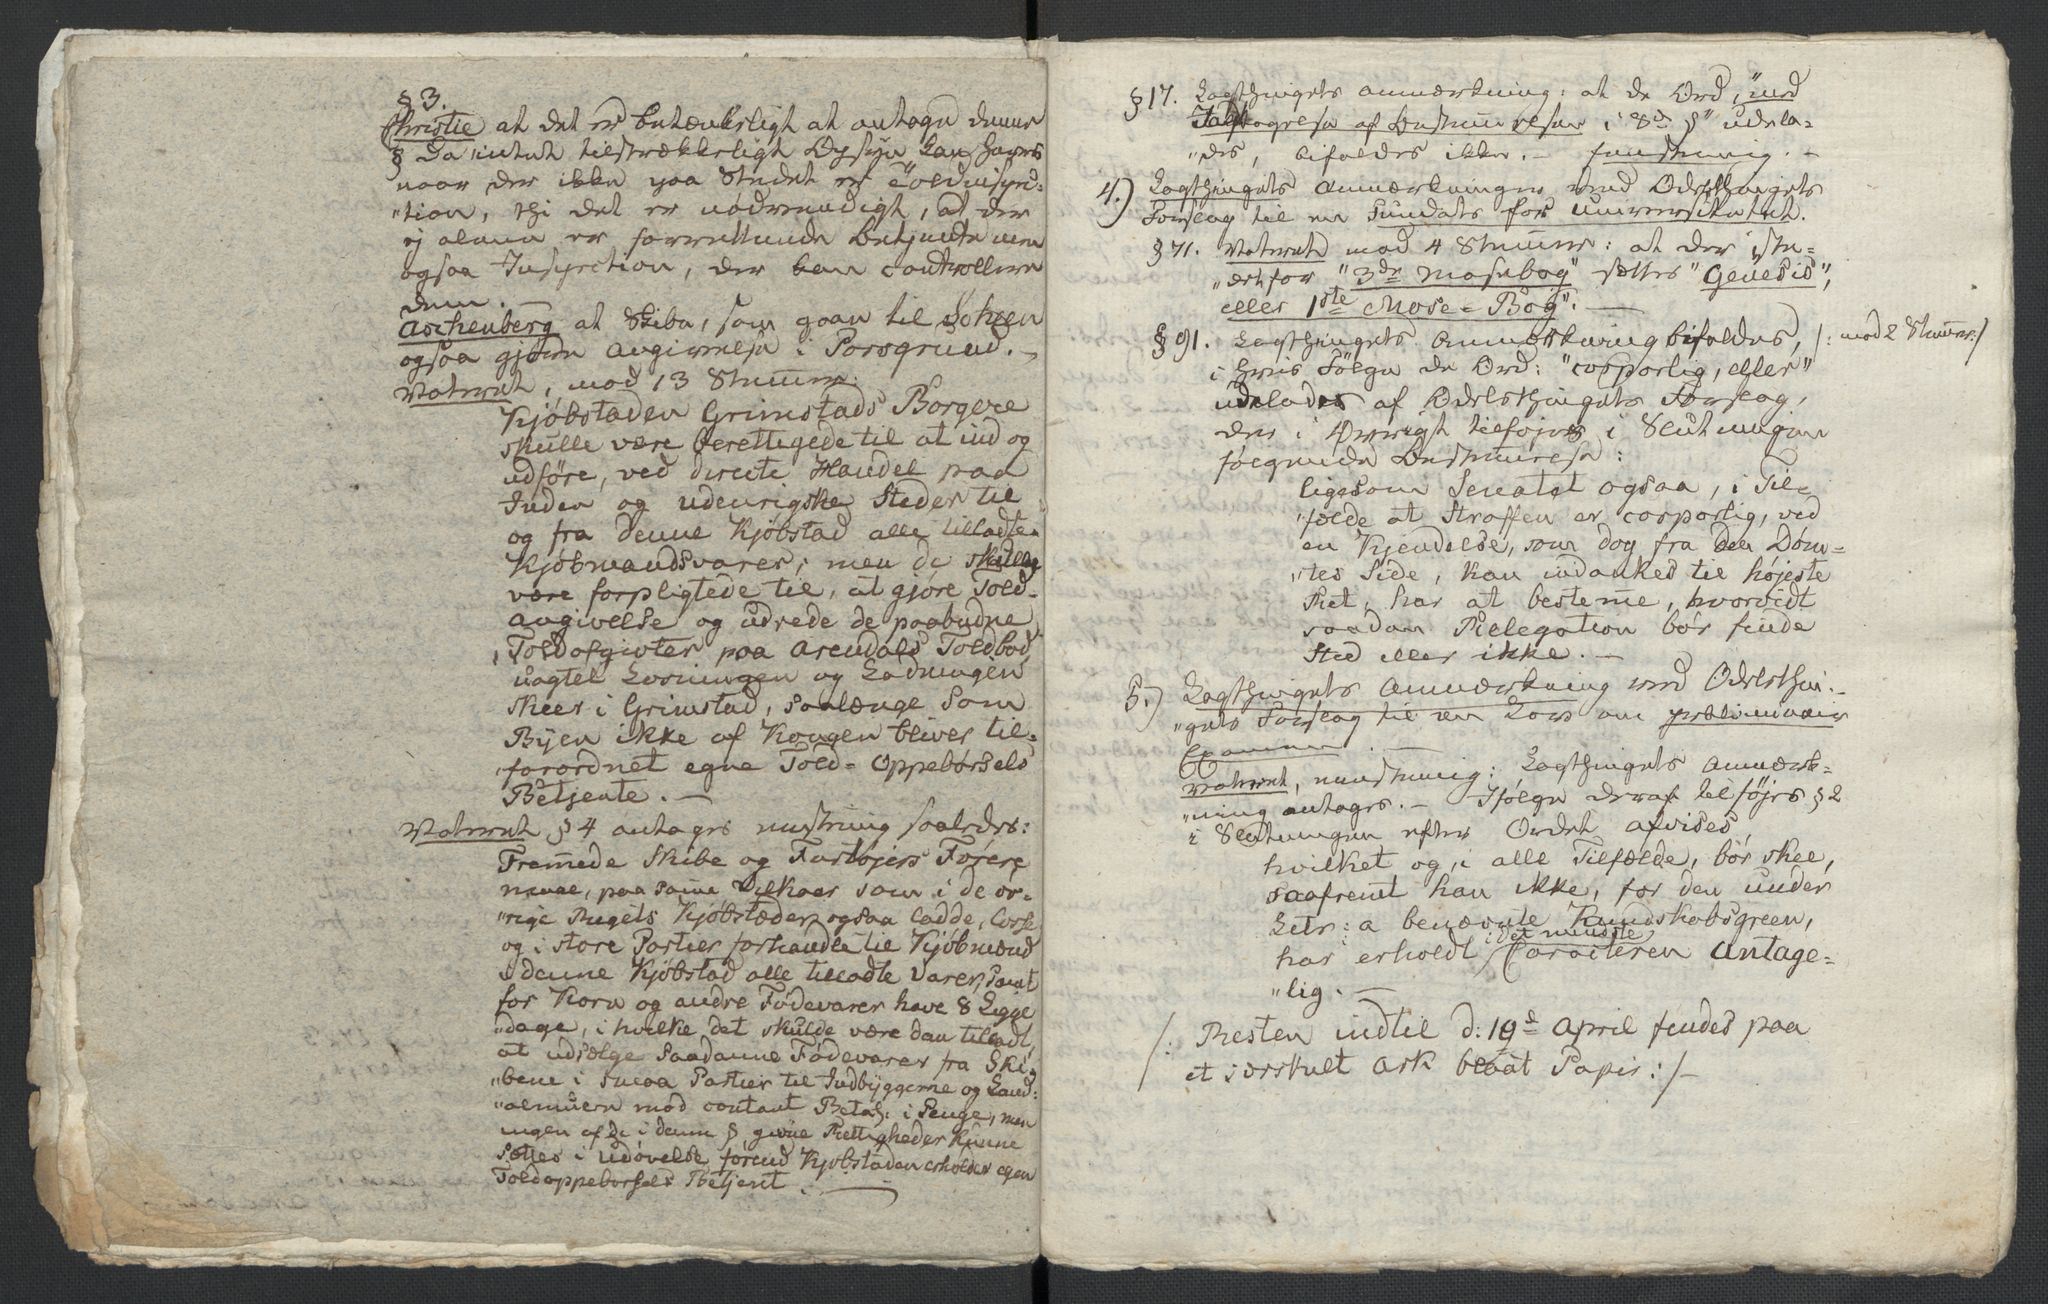 § 3.
Christie at det er betænkeligt at antage denne
§ da intet tilstrækkeligt Opsyn kan haves
naar der ikke paa Stedet er Toldinspec-
"tion, thi det er nødvendigt, at der
ej alene er forrettende Betjente men
ogsaa Inspection, der kan controllere
dem.
Aschenberg at Skibe, som gaar til
ogsaa gjøre Angivelse i Porsgrund. -
Voteret, mod 13 Stemmer:
Kjøbstaden Grimstads Borgere
skulle være berettigede til at ind og
udføre, ved directe Handel paa
Inden og udenrigske Steder til
og fra denne Kjøbstad alle tilladte
Kjøbmandsvarer; men de skulle
være forpligtede til, at gjøre Told-
angivelse og udrede de paabudne
Toldafgivter paa Arendals Toldbod,
uagtet Losningen og Ladningen
skeer i Grimstad, saalænge som
Byen ikke af Kongen bliver til-
"forordnet egne Told-Oppebørsels
Betjente. -
Voteret § 4 antages eenstemig saaledes:
Fremede Skibe og Fartøjers Førere
maae, paa same Vilkaar som i de øv-
"rige Rigets Kjøbstæder ogsaa ladde, losse
og i store Partier forhandle til Kjøbmænd
i denne Kjøbstad alle tilladte Varer, samt
for Korn og andre Fødevarer have 8 Ligge
"dage, i hvilke det skulde være dem tilladt,
at udsælge saadanne Fødevarer fra Ski-
"bene i smaa Partier til Indbyggerne og Land-
"almuen mod contant Betal: i Penge, men
ingen af de i denne § givne Rettigheder kunne
sættes i Udøvelse førend Kjøbstaden erholder egen
Toldoppebørsels Betjent. -
§ 17. Lagthingets Anmærkning: at de Ord, "med
Tagelse af Bestemmelsen i 8de §" udela-
"des, bifaldes ikke. - Eenstemig. -
4.) Lagthingets Anmærkninger ved Odelsthingets
Forslag til en Fundats for Universitetet.
§ 71. Voteret mod 4 Stemmer: at der iste-
"detfor "3de Mosebog" sættes "Genesis",
eller 1ste Mose-Bog". -
§ 91. Lagthingets Anmærkning bifaldes, /: mod 2 Stemmer:/
i hvis Følge de Ord: "corporlig, eller"
udelades af Odelsthingets Forslag,
der i Øvrigt tilføjes i Slutningen
følgende Bestemmelse:
ligesom Senatet ogsaa, i Til-
"fælde at Straffen er corporlig, ved
en Kjendelse, som dog fra den Døm-
"tes Side, kan indankes til højeste
Ret, har at bestemme, hvorvidt
saadan Relegation bør finde
Sted eller ikke. -
5.) Lagthingets Anmærkning ved Odelsthin-
"gets Forslag til en Lov om preliminair
Examen. -
Voteret, eenstemig: Lagthingets Anmærk-
"ning antages. - Ifølge deraf tilføjes § 2
i Slutningen efter Ordet afvises
hvilket og, i alle Tilfælde, bør skee,
saafremt han ikke, for den under
Litr: a benævnte Kundskabsgreen,
har erholdt i det mindste Caracteren Antage-
"lig. -
/: Resten indtil d: 19de April findes paa
et særskilt Ark blaat Papir :/ -